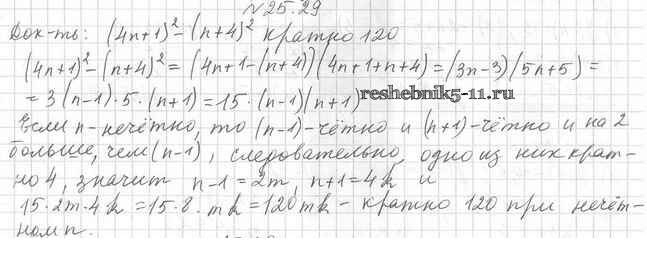 № 25.29
Док-ть: (4n+1)² - (n+4)² кратно 120
(4n+1)² - (n+4)² = (4n+1-(n+4))(4n+1+n+4) = (3n-3)(5n+5) =
= 3(n-1)·5·(n+1) = 15·(n-1)(n+1)
reshebnik5-11.ru
Если n-нечётно, то (n-1)-чётно и (n+1)-чётно и на 2
больше, чем (n-1), следовательно, одно из них крат-
но 4, значит n-1=2m, n+1=4k и
15·2m·4k=15·8·mk=120mk - кратно 120 при нечёт-
ном n.